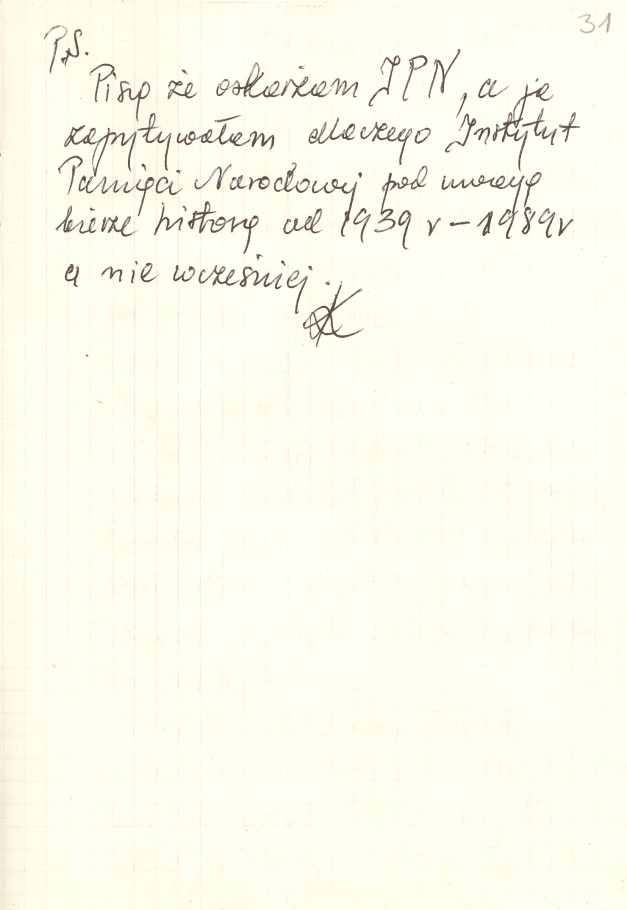 31
P.S.
Piszą że oskarżam IPN, a ja
zapytywałam dlaczego Instytut
Pamięci Narodowej pod uwagę
bierze historię od 1939 r – 1989 r
a nie wcześniej.